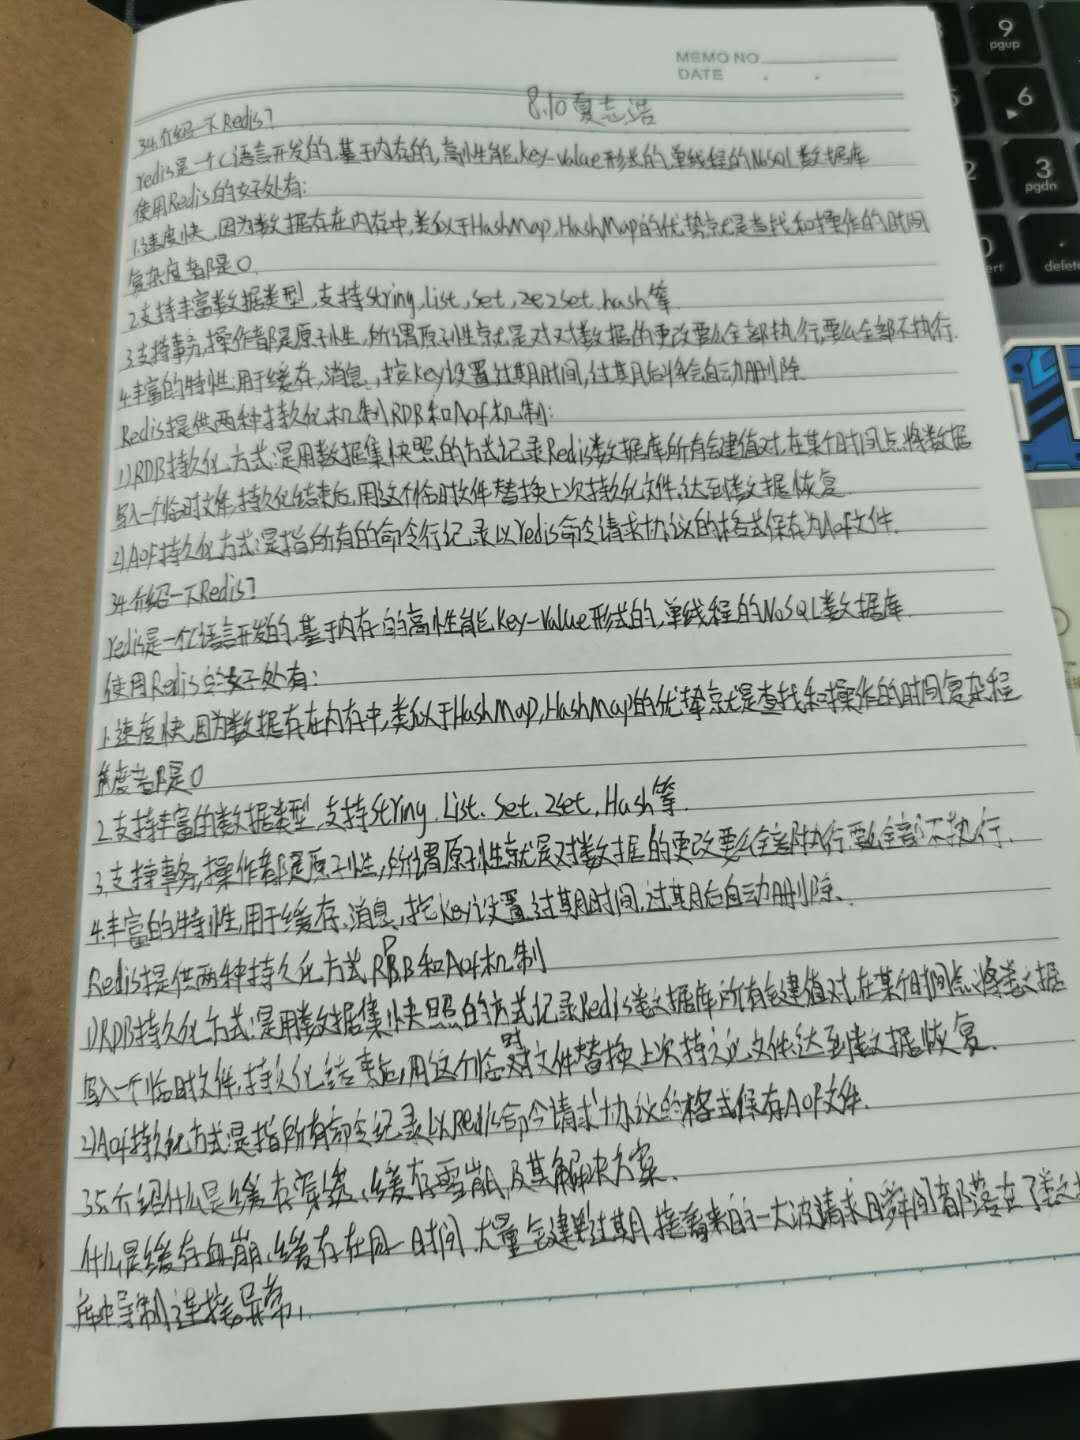 MEMO NO
DATE
8.10 夏志浩
34.介绍一下Redis?
redis是一个C语言开发的,基于内存的,高性能key-value形式的,单线程的NoSQL数据库
使用Redis的好处有:
1.速度快,因为数据存在内存中,类似于HashMap,HashMap的优势就是查找和操作的时间
复杂度都是O
2.支持丰富数据类型,支持string,list,set,ze2set,hash等
3.支持事务,操作都是原子性,所谓原子性就是对对数据的更改要么全部执行,要么全部不执行.
4.丰富的特性:用于缓存,消息,按key设置过期时间,过期后将会自动删除
Redis提供两种持久化机制RDB和Aof机制:
1)RDB持久化方式:是用数据集快照的方式记录Redis数据库所有键值对,在某个时间点将数据
写入一个临时文件,持久化结束后,用这个临时文件替换上次持久化文件,达到数据恢复.
2)AOF持久化方式:是指所有的命令行记录以redis命令请求协议的格式保存为Aof文件.
34.介绍一下Redis?
redis是一个C语言开发的,基于内存的高性能key-value形式的,单线程的NoSQL数据库.
使用Redis的好处有:
1.速度快,因为数据存在内存中,类似于HashMap,HashMap的优势就是查找和操作的时间复杂程
度都是O
2.支持丰富的数据类型,支持string,List,Set,2set,Hash等.
3.支持事务,操作都是原子性,所谓原子性就是对数据的更改要么全部执行,要么全部不执行.
4.丰富的特性,用于缓存,消息,按key设置过期时间,过期后自动删除.
Redis提供两种持久化方式RDB和Aof机制
1)RDB持久化方式:是用数据集快照的方式记录Redis数据库所有键值对,在某个时间点,将数据
写入一个临时文件,持久化结束后,用这个临时文件替换上次持久化文件,达到数据恢复.
2)Aof持久化方式:是指所有命令记录以redis命令请求协议的格式保存AOF文件.
35.介绍什么是缓存穿透,缓存雪崩,及其解决方案.
什么是缓存血崩,缓存在同一时间,大量键过期,接着来的一大波请求瞬间都落在了数据
库中导制连接异常,
9
pgup
6
3
pgdn
2
delete